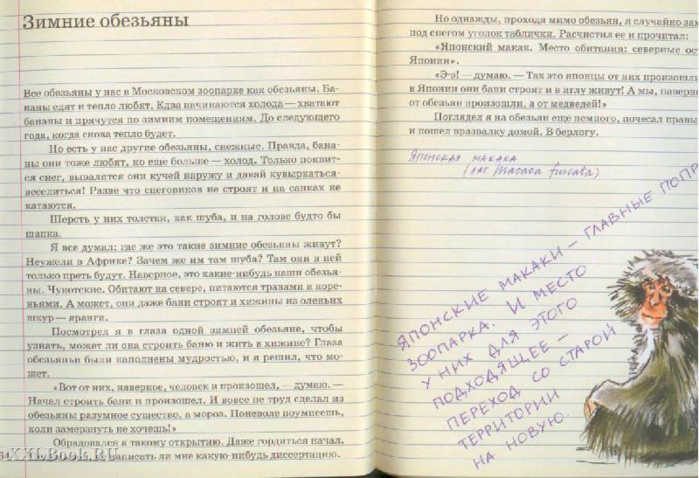 Зимние обезьяны
Все обезьяны у нас в Московском зоопарке как обезьяны. Ба-
наны едят и тепло любят. Едва начинаются холода — хватают
бананы и прячутся по зимним помещениям. До следующего
года, когда снова тепло будет.
Но есть у нас другие обезьяны, снежные. Правда, бана-
ны они тоже любят, но еще больше — холод. Только появит-
ся снег, вывалятся они кучей наружу и давай кувыркаться-
веселиться! Разве что снеговиков не строят и на санках не
катаются.
Шерсть у них толстая, как шуба, и на голове будто бы
шапка.
Я все думал: где же это такие зимние обезьяны живут?
Неужели в Африке? Зачем же им там шуба? Там они в ней
только преть будут. Наверное, это какие-нибудь наши обезья-
ны. Чукотские. Обитают на севере, питаются травами и коре-
ньями. А может, они даже бани строят и хижины из оленьих
шкур — яранги.
Посмотрел я в глаза одной зимней обезьяне, чтобы
узнать, может ли она строить баню и жить в хижине? Глаза
обезьяньи были наполнены мудростью, и я решил, что мо-
жет.
«Вот от них, наверное, человек и произошел, — думаю. —
Начал строить бани и произошел. И вовсе не труд сделал из
обезьяны разумное существо, а мороз. Поневоле поумнеешь,
коли замерзнуть не хочешь!»
Обрадовался я такому открытию. Даже гордиться начал.
написать ли мне какую-нибудь диссертацию.
XXLBook.RU
Но однажды, проходя мимо обезьян, я случайно зам
под снегом уголок таблички. Расчистил ее и прочитал:
«Японский макак. Место обитания: северные ост
Японии».
«Э-э! — думаю. — Так это японцы от них произошл
в Японии они бани строят и в иглу живут! А мы, наверн
от обезьян произошли, а от медведей!»
Поглядел я на обезьян еще немного, почесал правы
и пошел вразвалку домой. В берлогу.
Японская макака
(лат. Macaca fuscata)
ЯПОНСКИЕ МАКАКИ — ГЛАВНЫЕ ПОПР
ЗООПАРКА. И МЕСТО
У НИХ ДЛЯ ЭТОГО
ПОДХОДЯЩЕЕ —
ПЕРЕХОД СО СТАРОЙ
ТЕРРИТОРИИ
НА НОВУЮ.